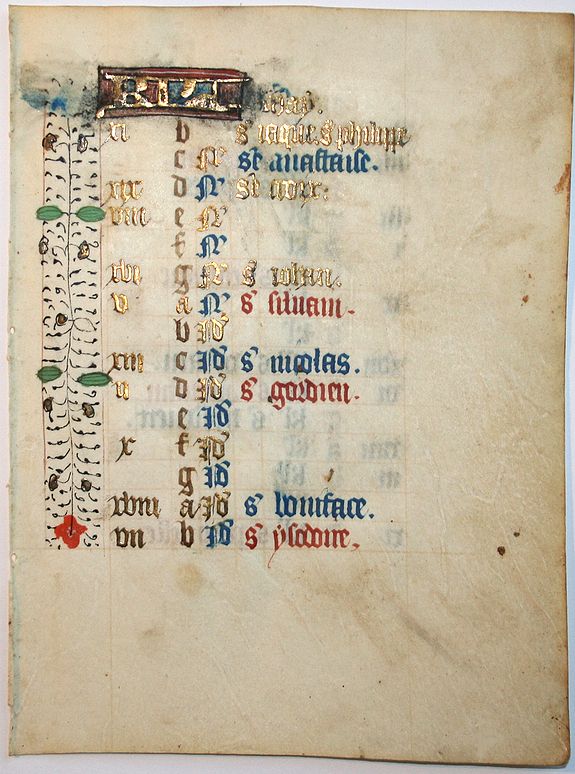 KL may.
xi b s iaque. s phílippe
c N se anastaise.
xix d N se croix.
viii e N
f N
xvi g N s iehan.
v a N s siluain.
b Id
xiii c Id s nicolas.
ii d Id s gordien.
e Id
x f Id
g Id
xviii a Id s boniface.
vii b Id s ysodore.